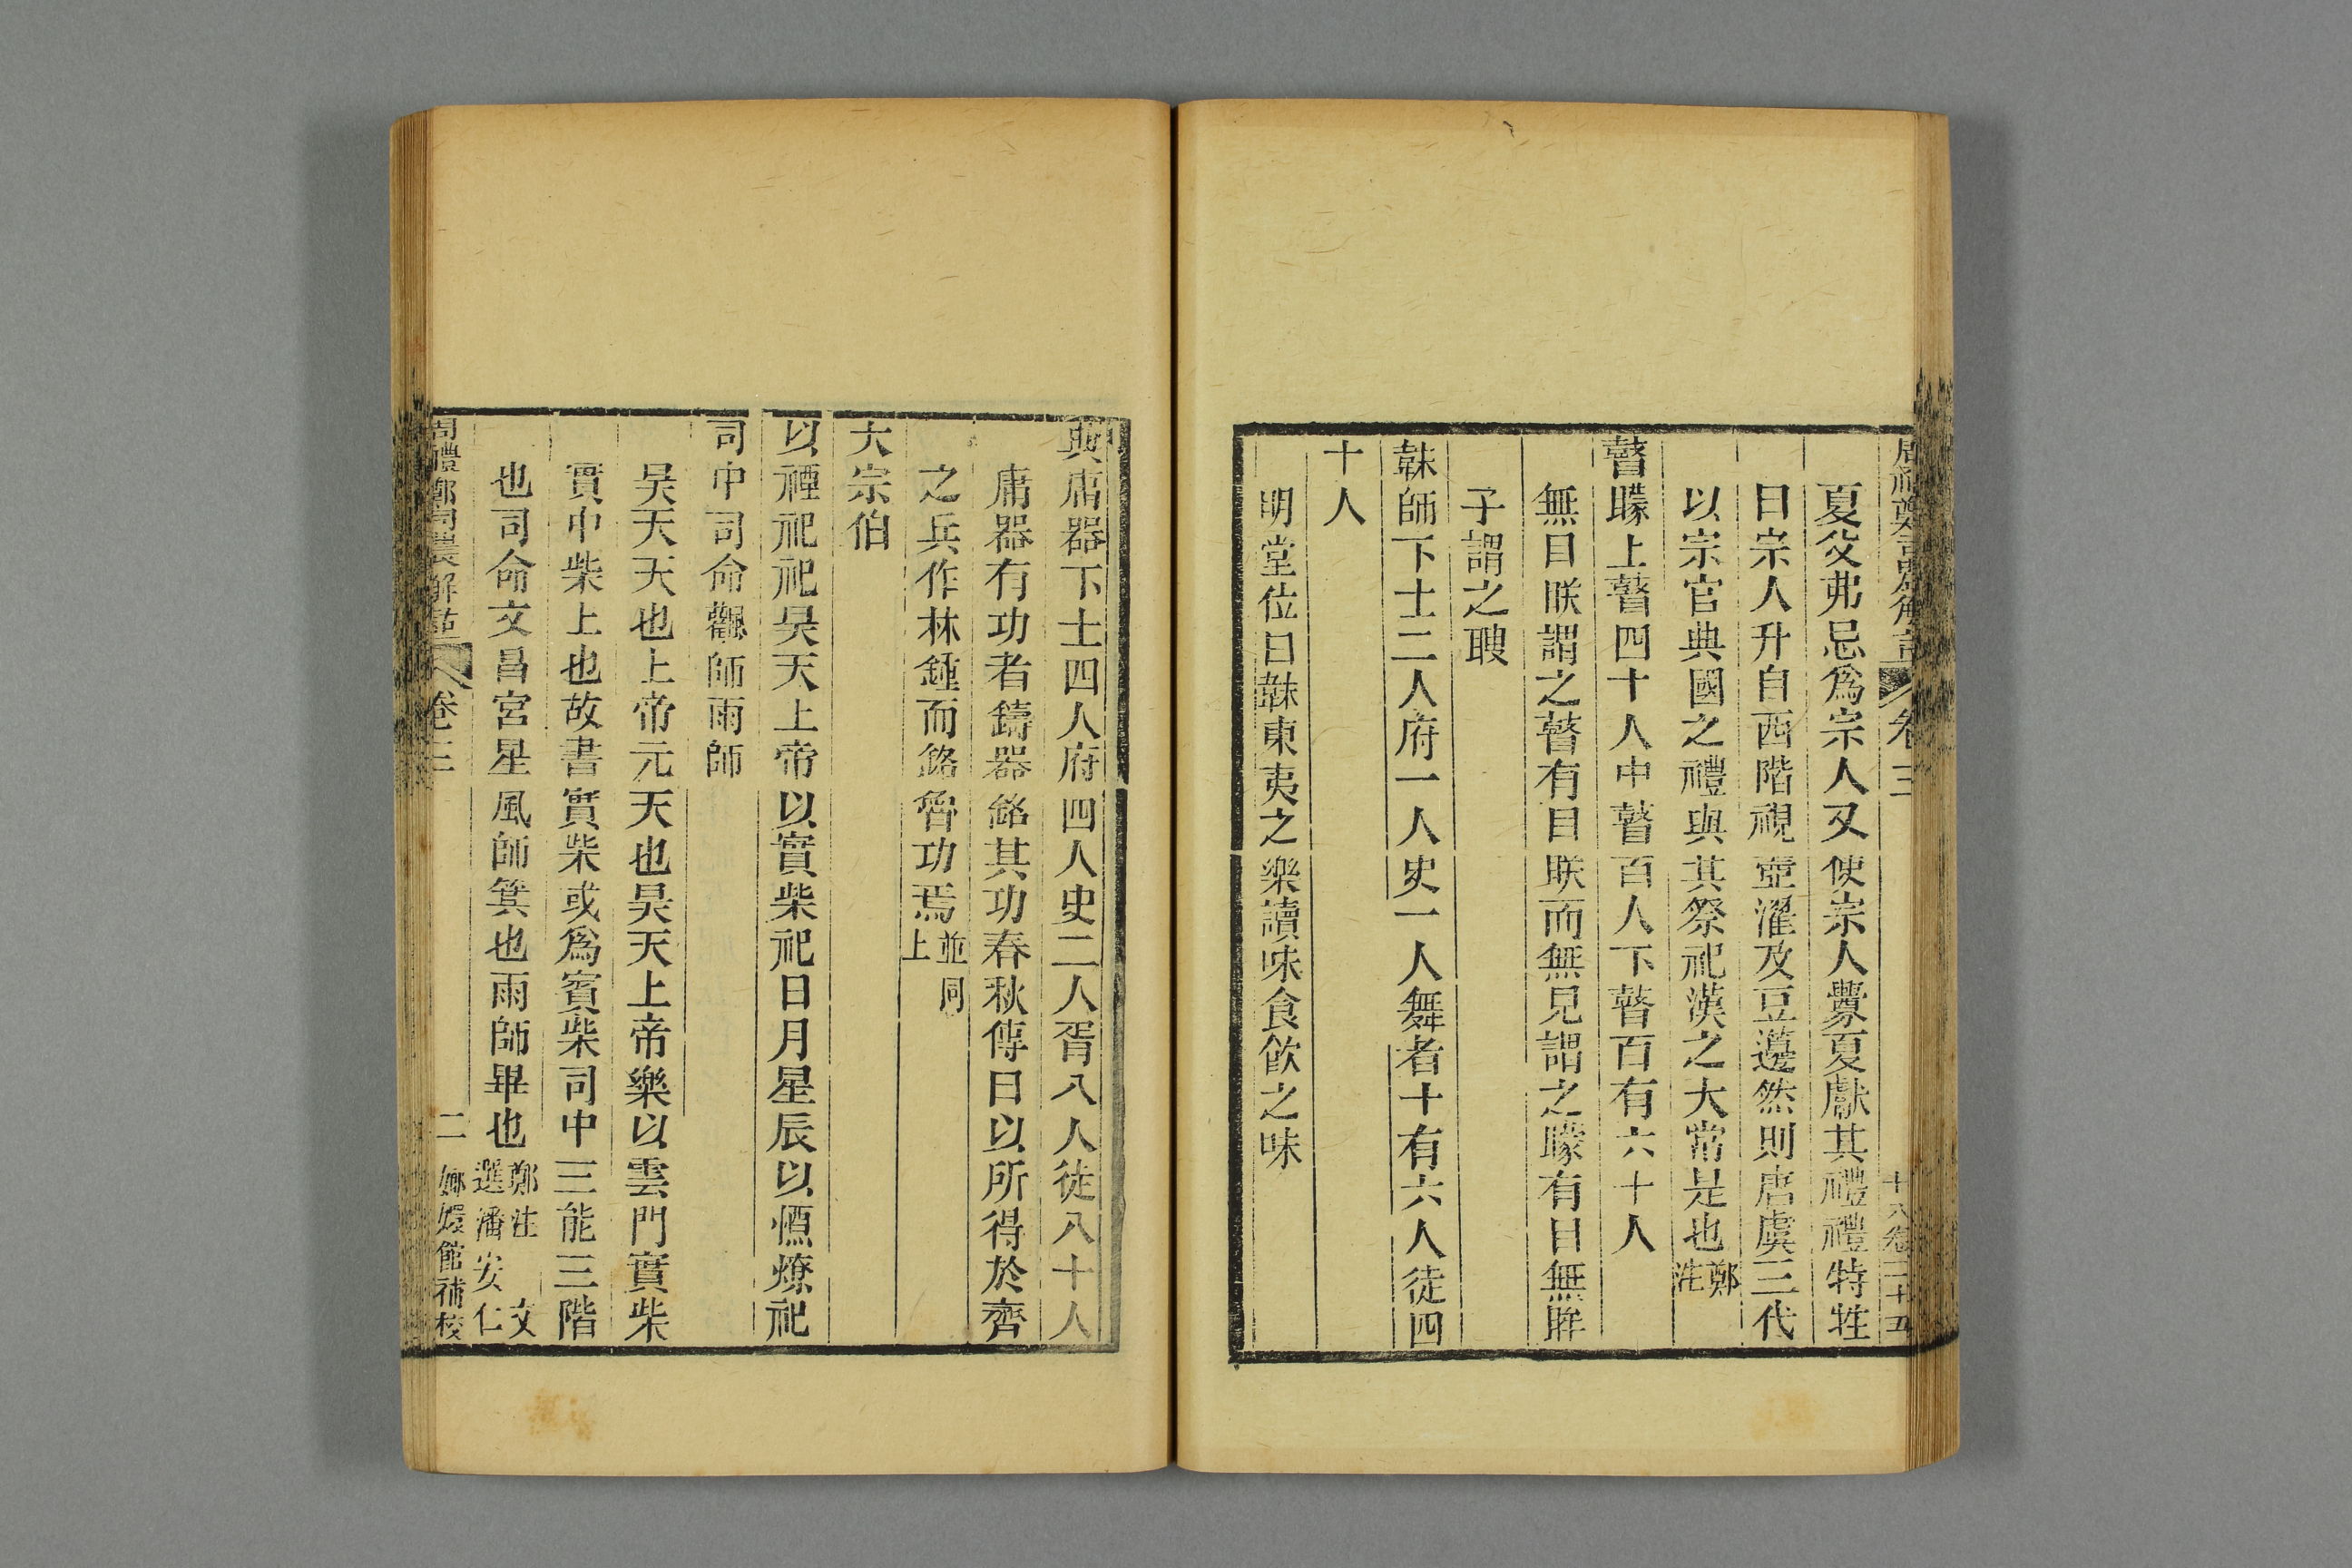 夏父弗忌爲宗人又使宗人釁夏獻其禮禮特牲
曰宗人升自西階視壺濯及豆籩然則唐虞三代
以宗官典國之禮與其祭祀漢之大常是也鄭注
瞽矇上瞽四十人中瞽百人下瞽百有六十人
無目眹謂之瞽有目眹而無見謂之矇有目無眸
子謂之瞍
韎師下士二人府一人史一人舞者十有六人徒四
十人
明堂位曰韎東夷之樂讀味食飲之味
典庸器下士四人府四人史二人胥八人徒八十人
庸器有功者鑄器銘其功春秋傳曰以所得於齊
之兵作林鍾而銘魯功焉並同上
大宗伯
以禋祀祀昊天上帝以實柴祀日月星辰以槱燎祀
司中司命飌師雨師
昊天天也上帝元天也昊天上帝樂以雲門實柴
實巾柴上也故書實柴或爲賓柴司中三能三階
也司命文昌宮星風師箕也雨師畢也鄭注 文選潘安仁
周禮鄭司農解詁 卷三 二 嫏嬛館補校